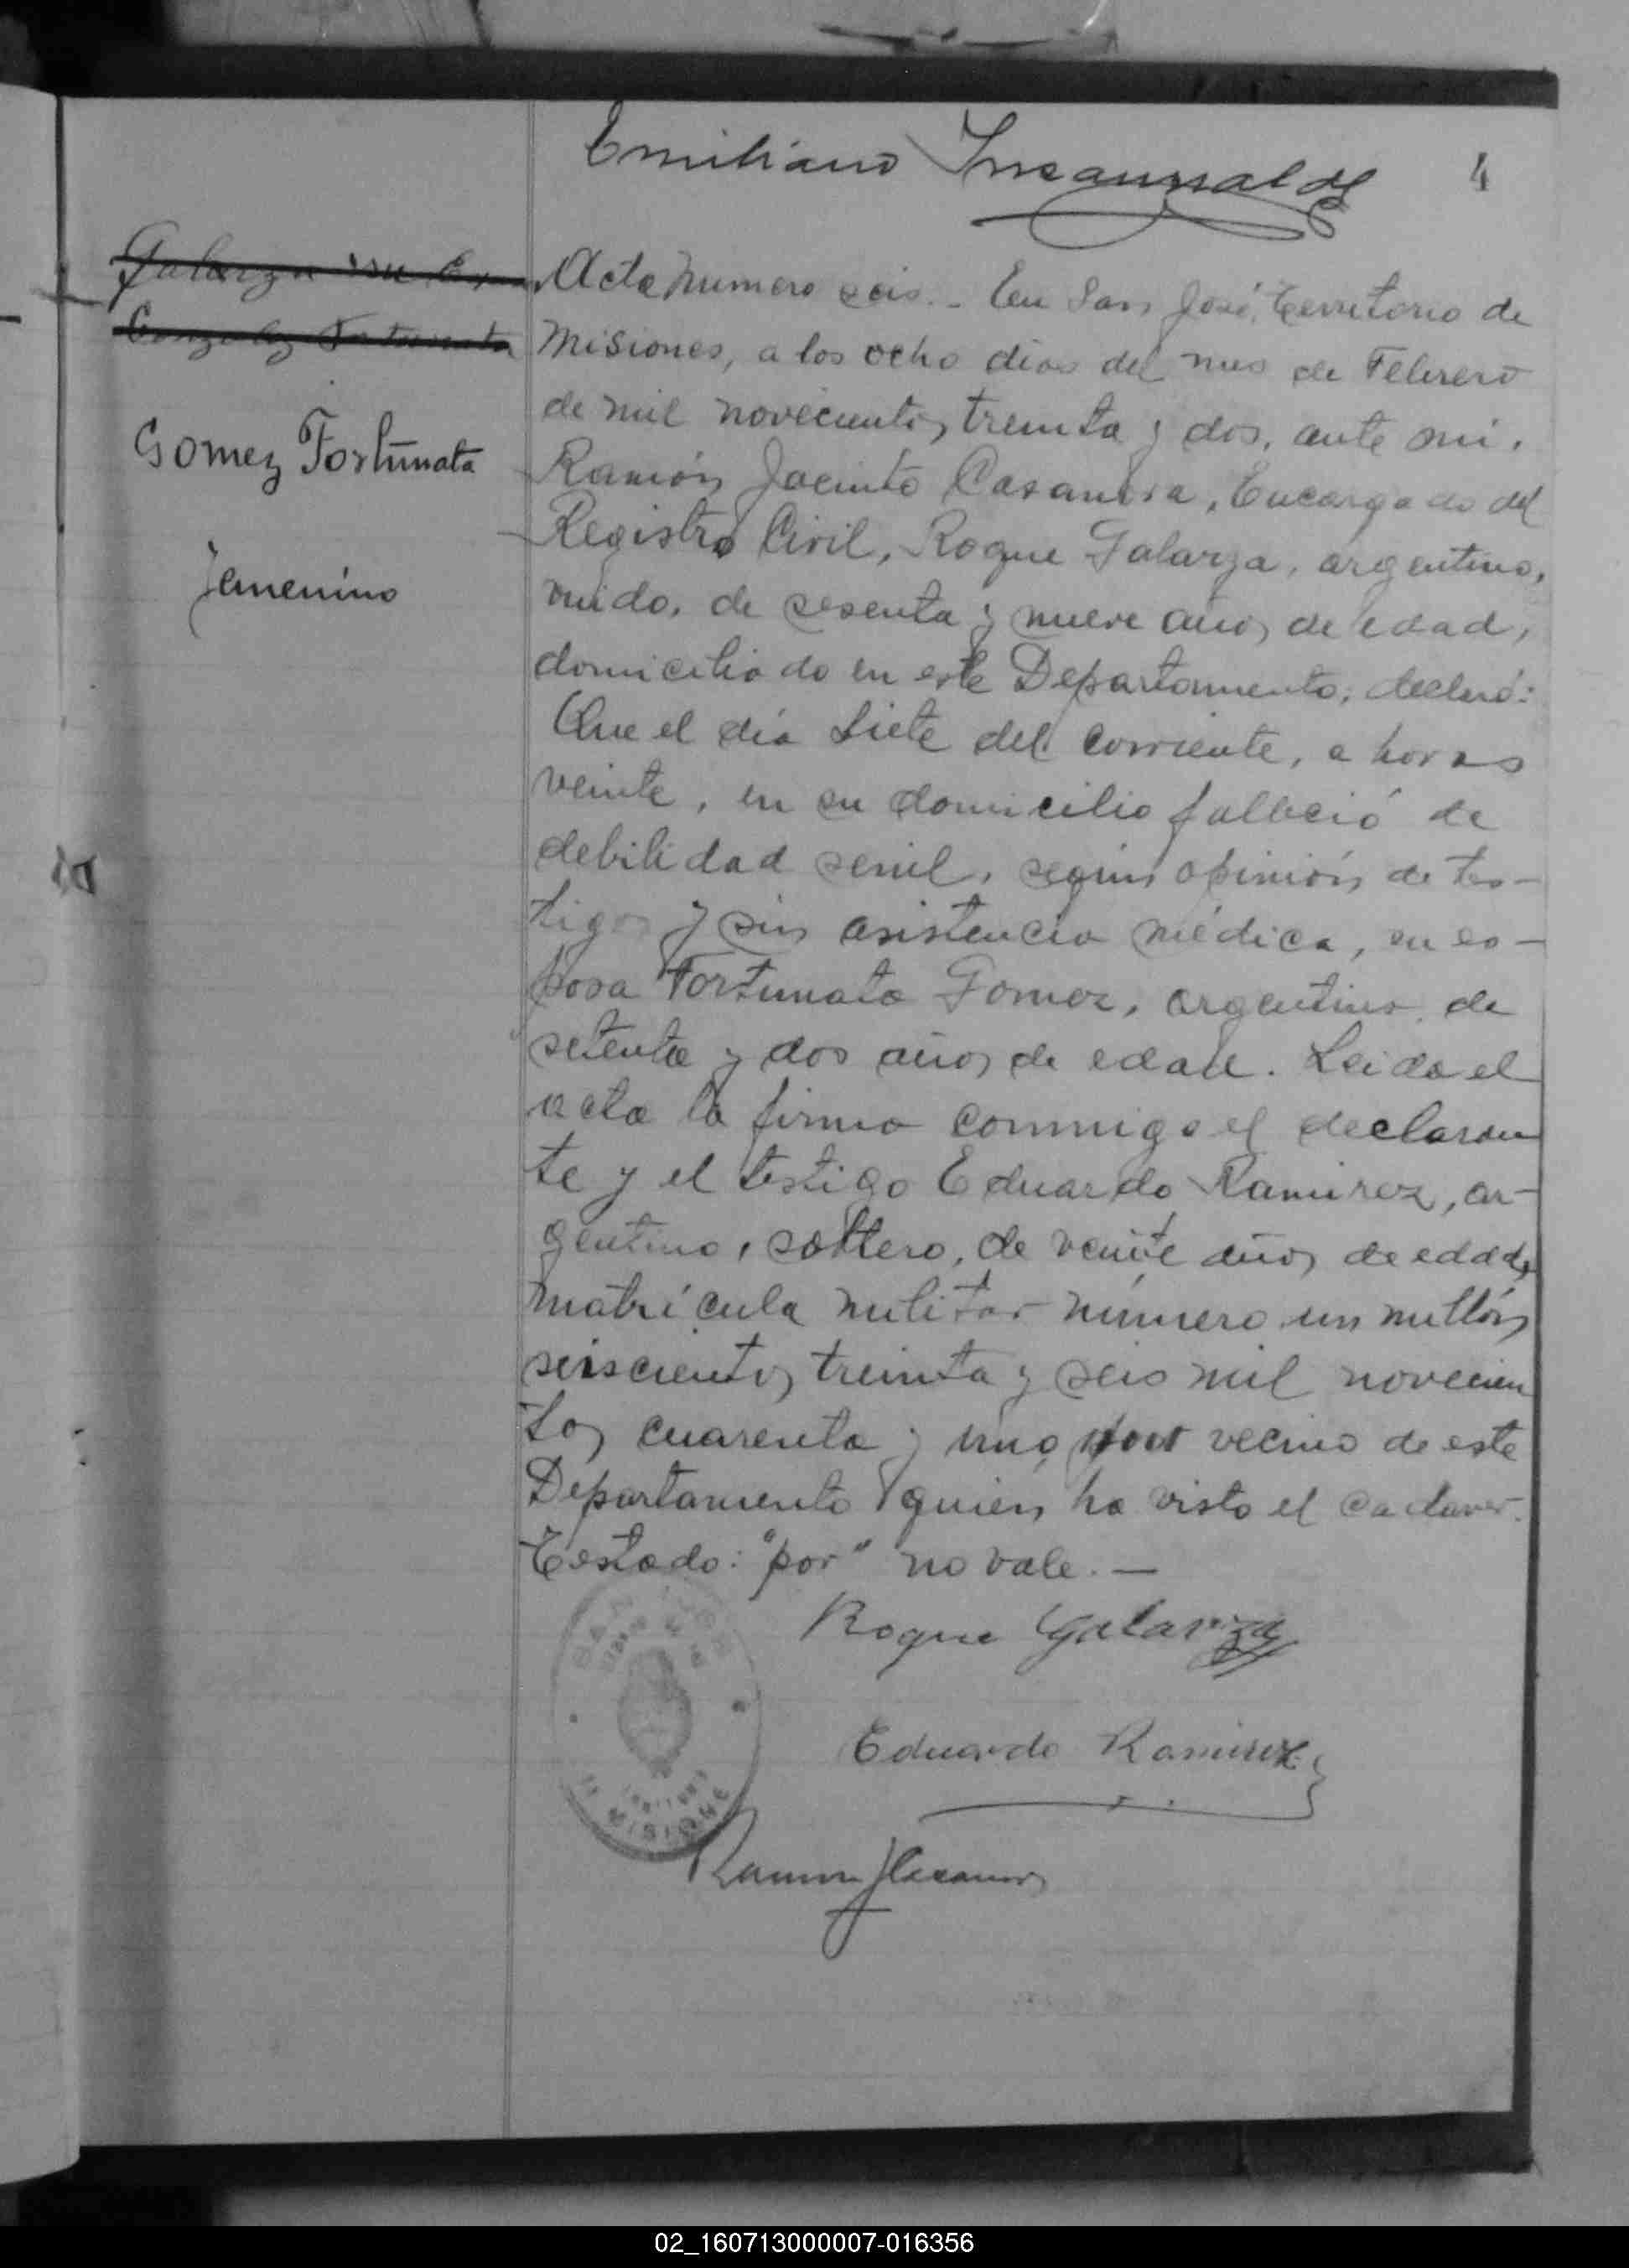 Emiliano Insaurralde
4
Acta número seis. - En San José, territorio de
Misiones, a los ocho dias del mes de Febrero
de mil novecientos treinta y dos, ante mi,
Gomez Fortunata
Ramón Jacinto Casanova, Encargado del
Registro Civil, Roque Galarza, argentino,
femenino
viudo, de sesenta y nueve años de edad,
domiciliado en este Departamento, declaró:
Que el día siete del corriente, a horas
veinte, en su domicilio falleció de
debilidad senil, según opinión de tes-
tigos y sin asistencia médica, su es-
posa Fortunata Gomez, argentina, de
setenta y dos años de edad. Leida el
acta la firma conmigo el declaran
te y el testigo Eduardo Ramirez, ar-
gentino, soltero, de veinte años de edad,
matrícula militar número un millón
seiscientos treinta y seis mil novecien
tos cuarenta y uno por vecino de este
Departamento quien ha visto el cadaver.
Testado: "por" no vale. —
Roque Galarza
Eduardo Ramirez
Ramon J Casanova
MISIONES
02_160713000007-016356